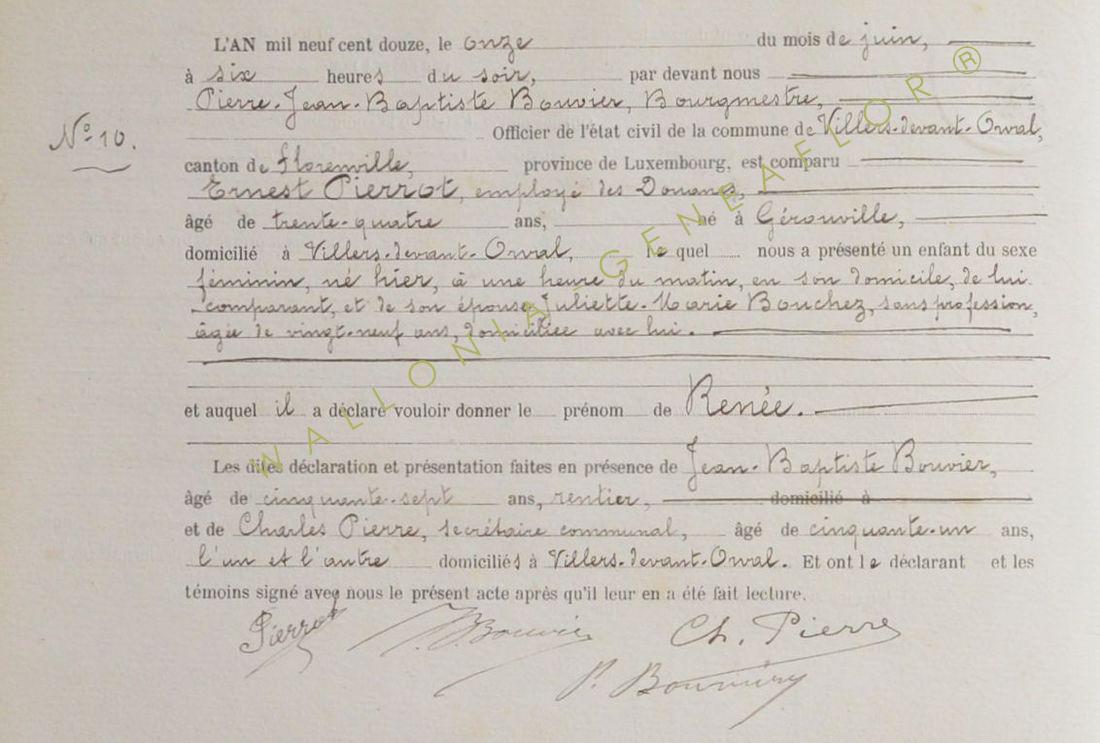 L'AN mil neuf cent douze, le onze du mois de juin,
à six heures du soir, par devant nous
Pierre-Jean-Baptiste Bouvier, Bourgmestre,
N° 10.
Officier de l'état civil de la commune de Villers-devant-Orval,
canton de Florenville, province de Luxembourg, est comparu
Ernest Pierrot, employé des Douanes,
âgé de trente-quatre ans, né à Gérouville,
domicilié à Villers-devant-Orval, le quel nous a présenté un enfant du sexe
féminin, né hier, à une heure du matin, en son domicile, de lui
comparant, et de son épouse Juliette-Marie Bouchez, sans profession,
âgée de vingt-neuf ans, domiciliée avec lui.
et auquel il a déclaré vouloir donner le prénom de Renée.
Les dites déclaration et présentation faites en présence de Jean-Baptiste Bouvier,
âgé de cinquante-sept ans, rentier, domicilié à
et de Charles Pierre, secrétaire communal, âgé de cinquante-un ans,
l'un et l'autre domiciliés à Villers-devant-Orval. Et ont le déclarant et les
témoins signé avec nous le présent acte après qu'il leur en a été fait lecture.
Pierrot J.B. Bouvier Ch. Pierre
WALLONIA - GENEAFLOR ®